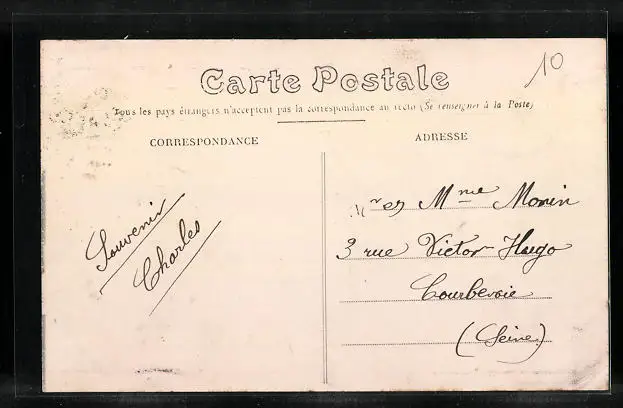 10
Carte Postale
Tous les pays étrangers n'acceptent pas la correspondance au recto (Se renseigner à la Poste)
CORRESPONDANCE
Souvenir
Charles
ADRESSE
Mr et Mme Monin
3 rue Victor-Hugo
Courbevoie
(Seine)